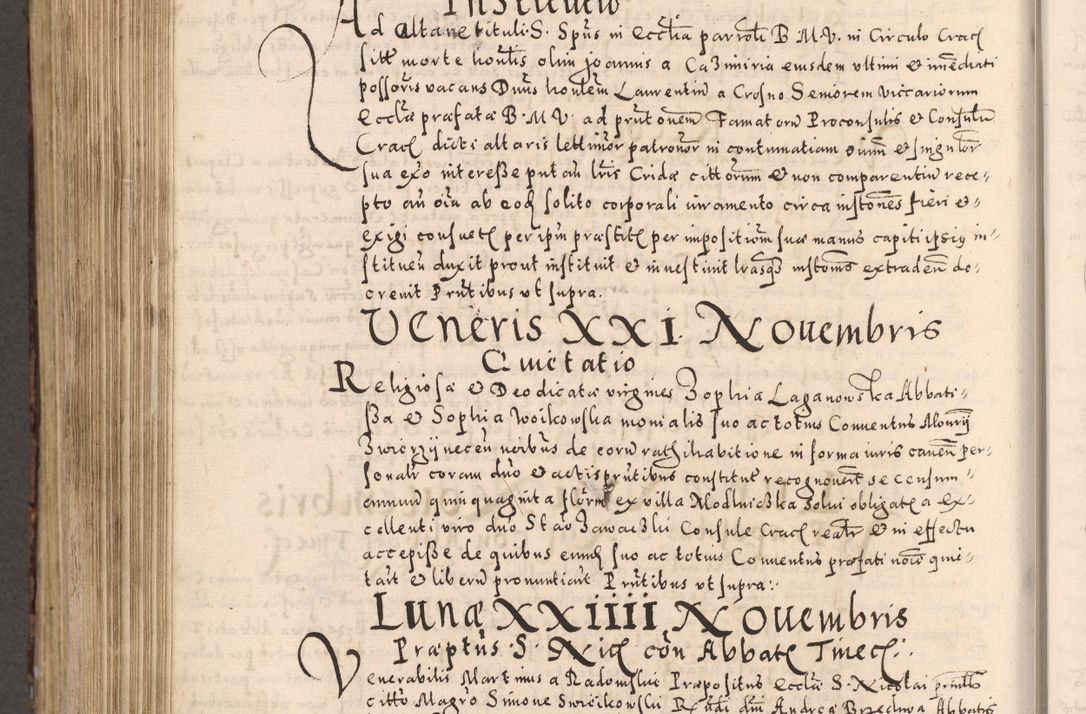 Institutio
Ad Altare tituli S. Spūs in Ecclīa parrotī B. M. V. in Circulo Crac
sitt morte honlis olim joannis a Cazimiria eiusdem vltimi et imediati
possoris vacans Dnūs honlem Laurentiū a Crosno Seniorem Viccariorum
Ecclæ præfatæ B. M. V. ad prntonem Famatorū Proconsulis et Consulū
Crac dicti altaris lettimor patronor in contumatiam oium et singulor
sua exo interesse putan lris Cridæ cittorum et non comparentiū rece-
pto aū oīa ab eod solito corporali iuramento circa instōnes fieri et
exigi consuet per ipm præstit per impositiom suæ manus capiti ipsius in-
stituen duxit prout instituit et inuestiuit lrasq instōnis extraden de-
creuit Prntibus vt supra.
Veneris XXI. Nouembris
Quietatio
Religiosæ et Deodicatæ virgines Zophia Laganowska Abbati-
ssa et Sophia Woikowska monialis suo ac totius Conuentus Monry
Zwierzynecen noibus de eorū rathihabitione in forma iuris cauen per-
sonalr coram dno et actis prntibus constitut recognouert se censum
annuum quinquaginta florn ex villa Modlniczka solui obligat a ex-
cellenti viro dno Stao Zawaczki Consule Crac realr et in effectu
accepisse de quibus eund suo ac totius Conuentus præfati noie quie-
tart et liberū pronuntiart Prntibus vt supra.
Lunæ XXIIII Nouembris
Præptus S. Nic con Abbat Tinec.
Venerabilis Martinus a Radomsko Præpositus Ecclæ S. Nicolai
citto Magro Simone Swieikowski Rndi dm Andreæ Brzechwa Abbatis